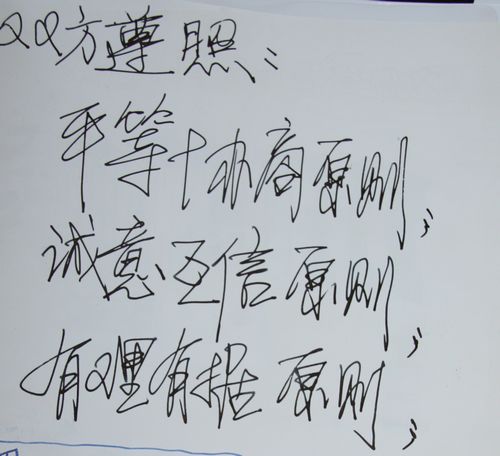 双方遵照：
平等协商原则；
诚意互信原则；
有理有据原则；